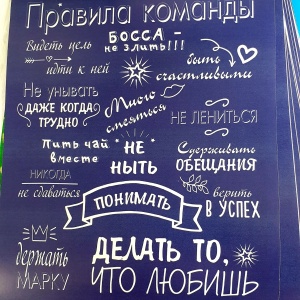 Правила команды
Видеть цель
идти к ней
БОССА -
не злить!!!
быть
счастливыми
Не унывать
ДАЖЕ КОГДА
ТРУДНО
Много
смеяться
НЕ ЛЕНИТЬСЯ
Пить чай
вместе
НЕ
НЫТЬ
Сдерживать
ОБЕЩАНИЯ
НИКОГДА
не сдаваться
ПОНИМАТЬ
верить
В УСПЕХ
держать
МАРКУ
ДЕЛАТЬ ТО,
ЧТО ЛЮБИШЬ